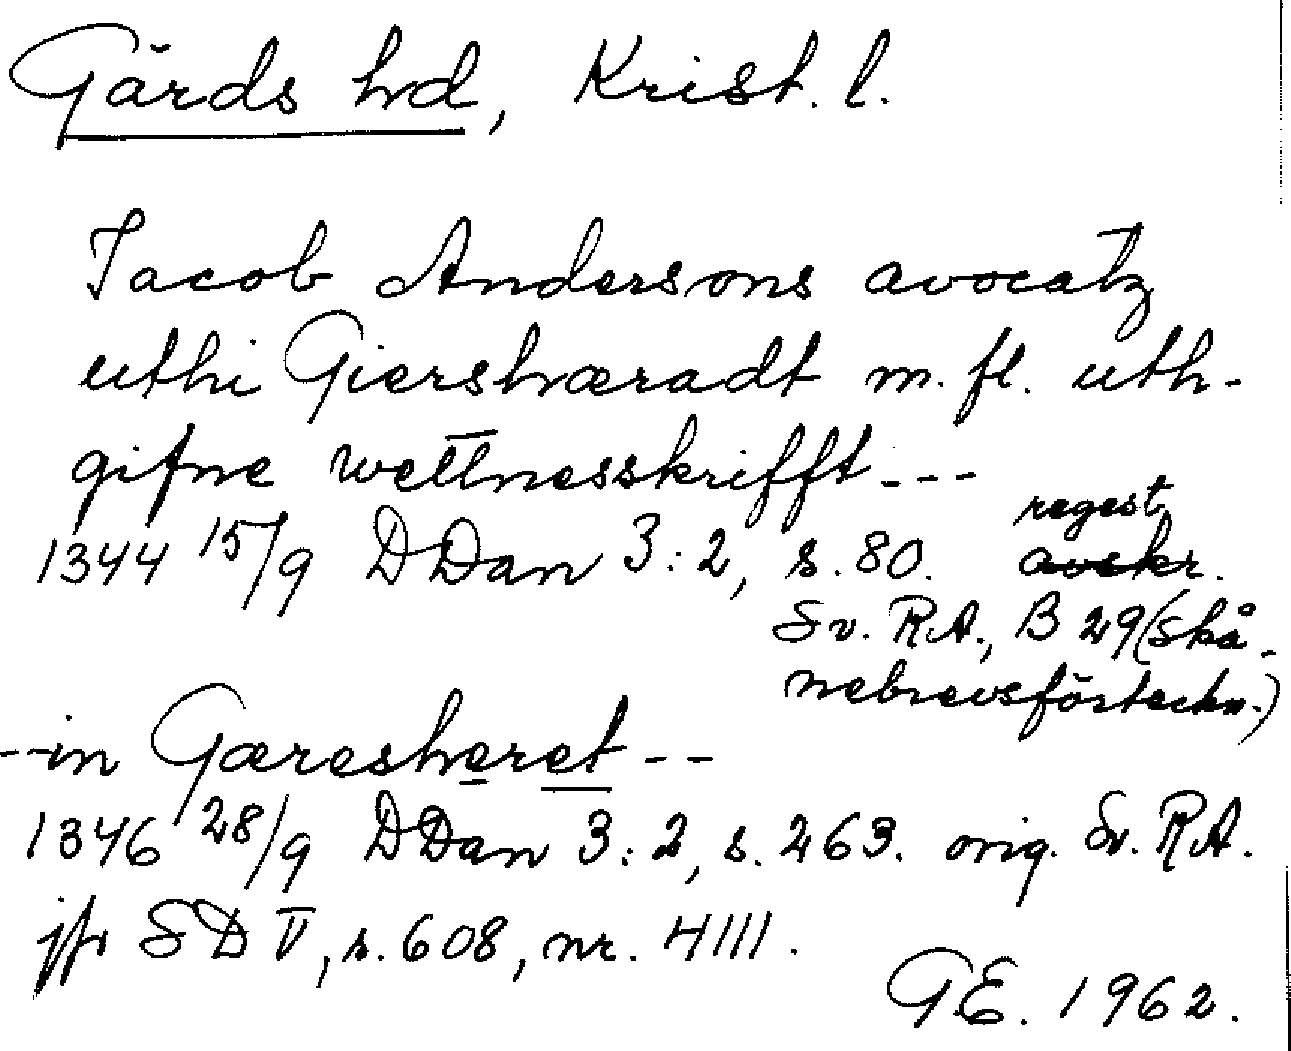 Gärds hd, Krist. l.
Jacob Andersons avocatz
uthi Giershæradt m. fl. uth-
gifne wettnesskrifft---
regest
1344 15/9 DDan 3:2, s. 80. avskr.
Sv. RA., B 29 (Skå-
nebrevsförteckn.)
--in Gæresheret--
1346 28/9 DDan 3:2, s. 263. orig. Sv. RA.
jfr SD V, s. 608, nr. 4111.
GE. 1962.